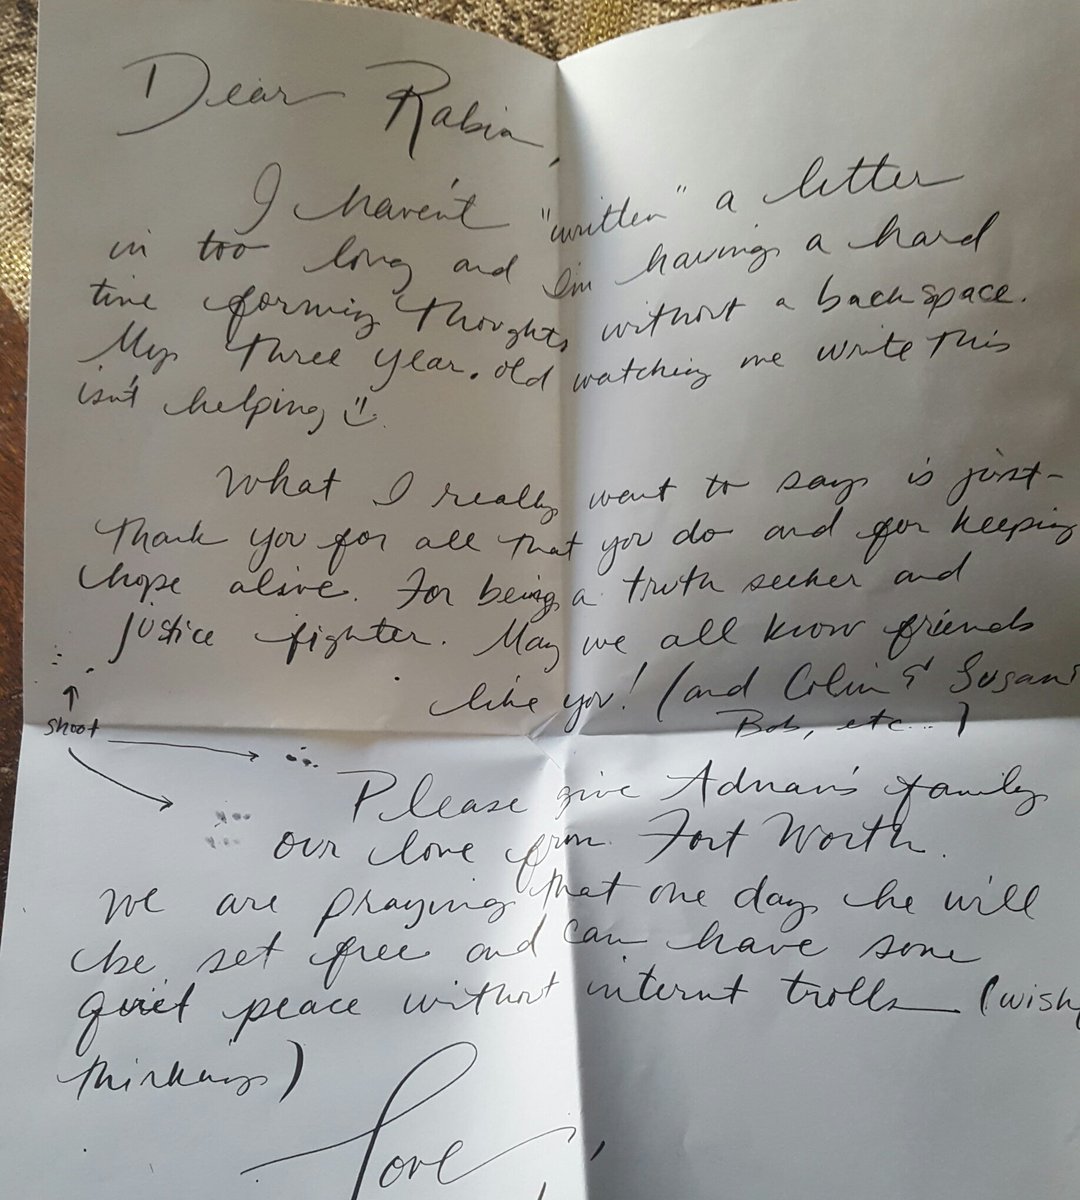 Dear Rabia,
I haven't "written" a letter
in too long and I'm having a hard
time forming thoughts without a backspace.
My three year. old watching me write this
isn't helping :)
What I really want to say is just-
thank you for all that you do and for keeping
hope alive. For being a truth seeker and
justice fighter. May we all know friends
like you! (and Colin & Susan
Bob, etc...)
shoot
Please give Adnan's family
our love from Fort Worth.
We are praying that one day he will
be set free and can have some
quiet peace without internet trolls (wish
thinking)
Love,